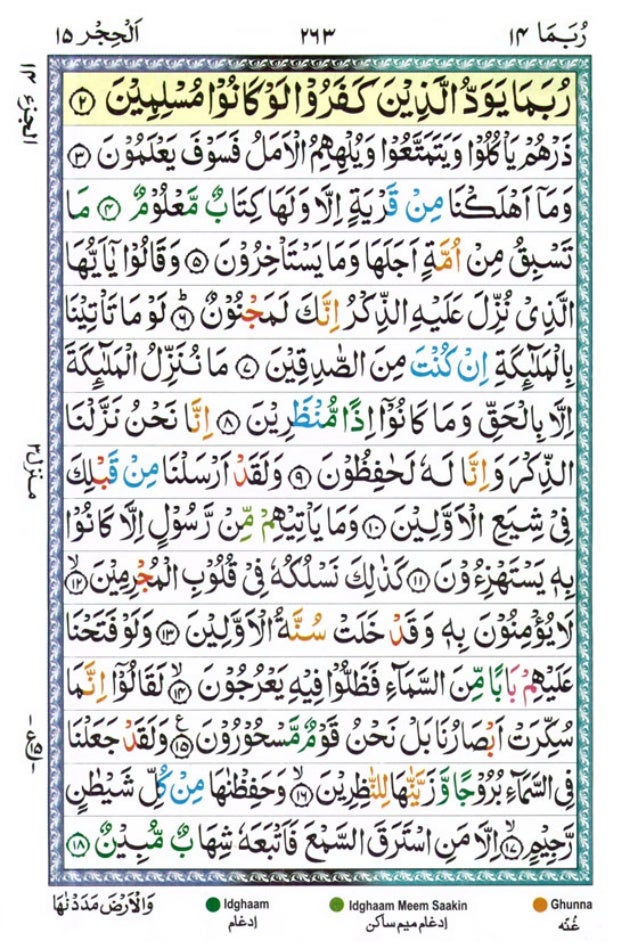 رُبَمَا ۱۴
۲۶۳
اَلْحِجْر ۱۵
الجزء ۱۴
رُبَمَا يَوَدُّ الَّذِيْنَ كَفَرُوْا لَوْ كَانُوْا مُسْلِمِيْنَ ﴿۲﴾
ذَرْهُمْ يَاْكُلُوْا وَيَتَمَتَّعُوْا وَيُلْهِهِمُ الْاَمَلُ فَسَوْفَ يَعْلَمُوْنَ ﴿۳﴾
وَمَاۤ اَهْلَكْنَا مِنْ قَرْيَةٍ اِلَّا وَلَهَا كِتَابٌ مَّعْلُوْمٌ ﴿۴﴾ مَا
تَسْبِقُ مِنْ اُمَّةٍ اَجَلَهَا وَمَا يَسْتَاْخِرُوْنَ ﴿۵﴾ وَقَالُوْا يٰۤاَيُّهَا
الَّذِىْ نُزِّلَ عَلَيْهِ الذِّكْرُ اِنَّكَ لَمَجْنُوْنٌ ﴿۶﴾ؕ لَوْ مَا تَاْتِيْنَا
بِالْمَلٰٓئِكَةِ اِنْ كُنْتَ مِنَ الصّٰدِقِيْنَ ﴿۷﴾ مَا نُنَزِّلُ الْمَلٰٓئِكَةَ
اِلَّا بِالْحَقِّ وَمَا كَانُوْۤا اِذًا مُّنْظَرِيْنَ ﴿۸﴾ اِنَّا نَحْنُ نَزَّلْنَا
الذِّكْرَ وَاِنَّا لَهٗ لَحٰفِظُوْنَ ﴿۹﴾ وَلَقَدْ اَرْسَلْنَا مِنْ قَبْلِكَ
فِىْ شِيَعِ الْاَوَّلِيْنَ ﴿۱۰﴾ وَمَا يَاْتِيْهِمْ مِّنْ رَّسُوْلٍ اِلَّا كَانُوْا
بِهٖ يَسْتَهْزِءُوْنَ ﴿۱۱﴾ كَذٰلِكَ نَسْلُكُهٗ فِىْ قُلُوْبِ الْمُجْرِمِيْنَ ﴿۱۲﴾ۙ
لَا يُؤْمِنُوْنَ بِهٖ وَقَدْ خَلَتْ سُنَّةُ الْاَوَّلِيْنَ ﴿۱۳﴾ وَلَوْ فَتَحْنَا
عَلَيْهِمْ بَابًا مِّنَ السَّمَآءِ فَظَلُّوْا فِيْهِ يَعْرُجُوْنَ ﴿۱۴﴾ۙ لَقَالُوْۤا اِنَّمَا
سُكِّرَتْ اَبْصَارُنَا بَلْ نَحْنُ قَوْمٌ مَّسْحُوْرُوْنَ ﴿۱۵﴾ۧ وَلَقَدْ جَعَلْنَا
فِى السَّمَآءِ بُرُوْجًا وَّزَيَّنّٰهَا لِلنّٰظِرِيْنَ ﴿۱۶﴾ۙ وَحَفِظْنٰهَا مِنْ كُلِّ شَيْطٰنٍ
رَّجِيْمٍ ﴿۱۷﴾ۙ اِلَّا مَنِ اسْتَرَقَ السَّمْعَ فَاَتْبَعَهٗ شِهَابٌ مُّبِيْنٌ ﴿۱۸﴾
منزل ۳
وَالْاَرْضَ مَدَدْنٰهَا
Idghaam
إدغام
Idghaam Meem Saakin
إدغام ميم ساكن
Ghunna
غُنّه